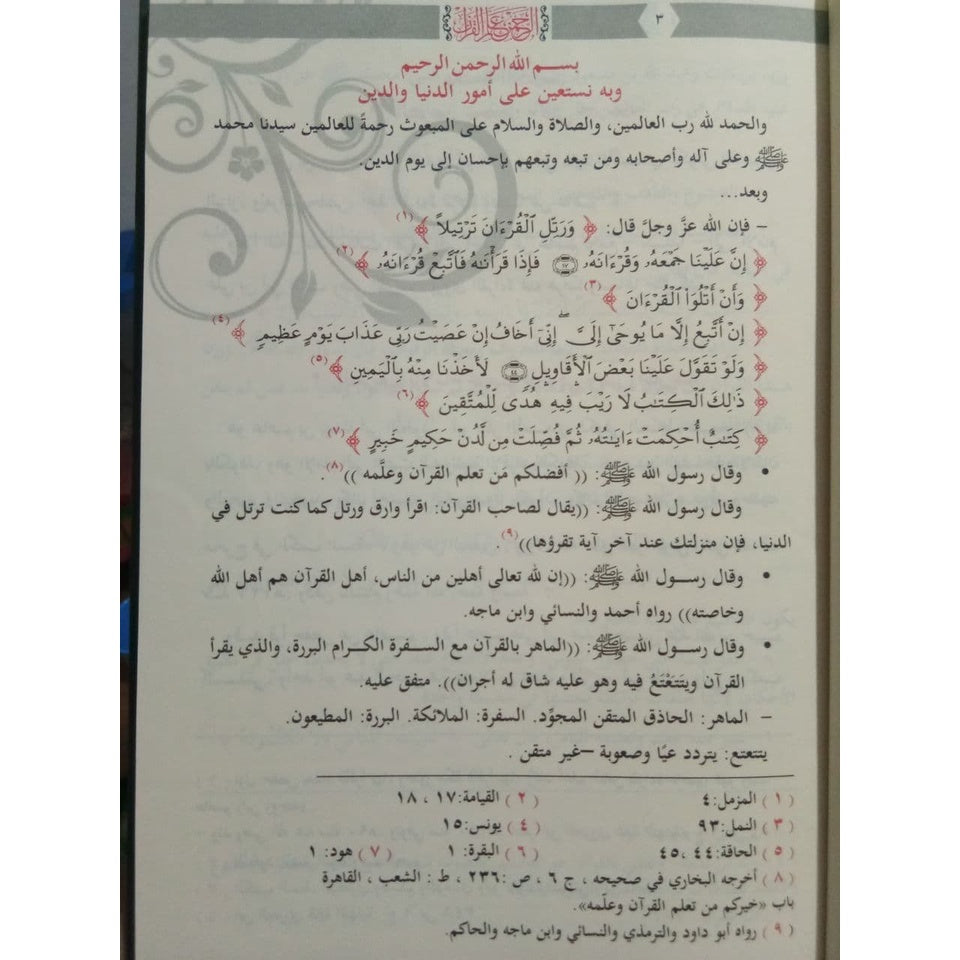 ٣
الرحمن علم القرآن
بسم الله الرحمن الرحيم
وبه نستعين على أمور الدنيا والدين
والحمد لله رب العالمين، والصلاة والسلام على المبعوث رحمةً للعالمين سيدنا محمد
ﷺ وعلى آله وأصحابه ومن تبعه وتبعهم بإحسان إلى يوم الدين.
وبعد...
– فإن الله عزَّ وجلَّ قال: ﴿ وَرَتِّلِ ٱلْقُرْءَانَ تَرْتِيلاً ﴾ (١)
﴿ إِنَّ عَلَيْنَا جَمْعَهُۥ وَقُرْءَانَهُۥ ۝١٧ فَإِذَا قَرَأْنَٰهُ فَٱتَّبِعْ قُرْءَانَهُۥ ﴾ (٢)
﴿ وَأَنْ أَتْلُوَا۟ ٱلْقُرْءَانَ ﴾ (٣)
﴿ إِنْ أَتَّبِعُ إِلَّا مَا يُوحَىٰٓ إِلَىَّ ۖ إِنِّىٓ أَخَافُ إِنْ عَصَيْتُ رَبِّى عَذَابَ يَوْمٍ عَظِيمٍ ﴾ (٤)
﴿ وَلَوْ تَقَوَّلَ عَلَيْنَا بَعْضَ ٱلْأَقَاوِيلِ ۝٤٤ لَأَخَذْنَا مِنْهُ بِٱلْيَمِينِ ﴾ (٥)
﴿ ذَٰلِكَ ٱلْكِتَٰبُ لَا رَيْبَ فِيهِ هُدًى لِّلْمُتَّقِينَ ﴾ (٦)
﴿ كِتَٰبٌ أُحْكِمَتْ ءَايَٰتُهُۥ ثُمَّ فُصِّلَتْ مِن لَّدُنْ حَكِيمٍ خَبِيرٍ ﴾ (٧)
• وقال رسول الله ﷺ: (( أفضلكم مَن تعلم القرآن وعلَّمه ))(٨).
وقال رسول الله ﷺ: ((يقال لصاحب القرآن: اقرأ وارق ورتل كما كنت ترتل في
الدنيا، فإن منزلتك عند آخر آية تقرؤها))(٩).
• وقال رسول الله ﷺ: ((إن لله تعالى أهلين من الناس، أهل القرآن هم أهل الله
وخاصته)) رواه أحمد والنسائي وابن ماجه.
• وقال رسول الله ﷺ: ((الماهر بالقرآن مع السفرة الكرام البررة، والذي يقرأ
القرآن ويتَتَعْتَعُ فيه وهو عليه شاق له أجران)). متفق عليه.
– الماهر: الحاذق المتقن المجوِّد. السفرة: الملائكة. البررة: المطيعون.
يتتعتع: يتردد عيًا وصعوبة –غير متقن .
( ١ ) المزمل: ٤ ( ٢ ) القيامة: ١٧ ، ١٨
( ٣ ) النمل: ٩٣ ( ٤ ) يونس: ١٥
( ٥ ) الحاقة: ٤٤ ،٤٥ ( ٦ ) البقرة: ١ ( ٧ ) هود: ١
( ٨ ) أخرجه البخاري في صحيحه ، ج ٦ ، ص :٢٣٦ ، ط : الشعب ، القاهرة
باب «خيركم من تعلم القرآن وعلّمه».
( ٩ ) رواه أبو داود والترمذي والنسائي وابن ماجه والحاكم.